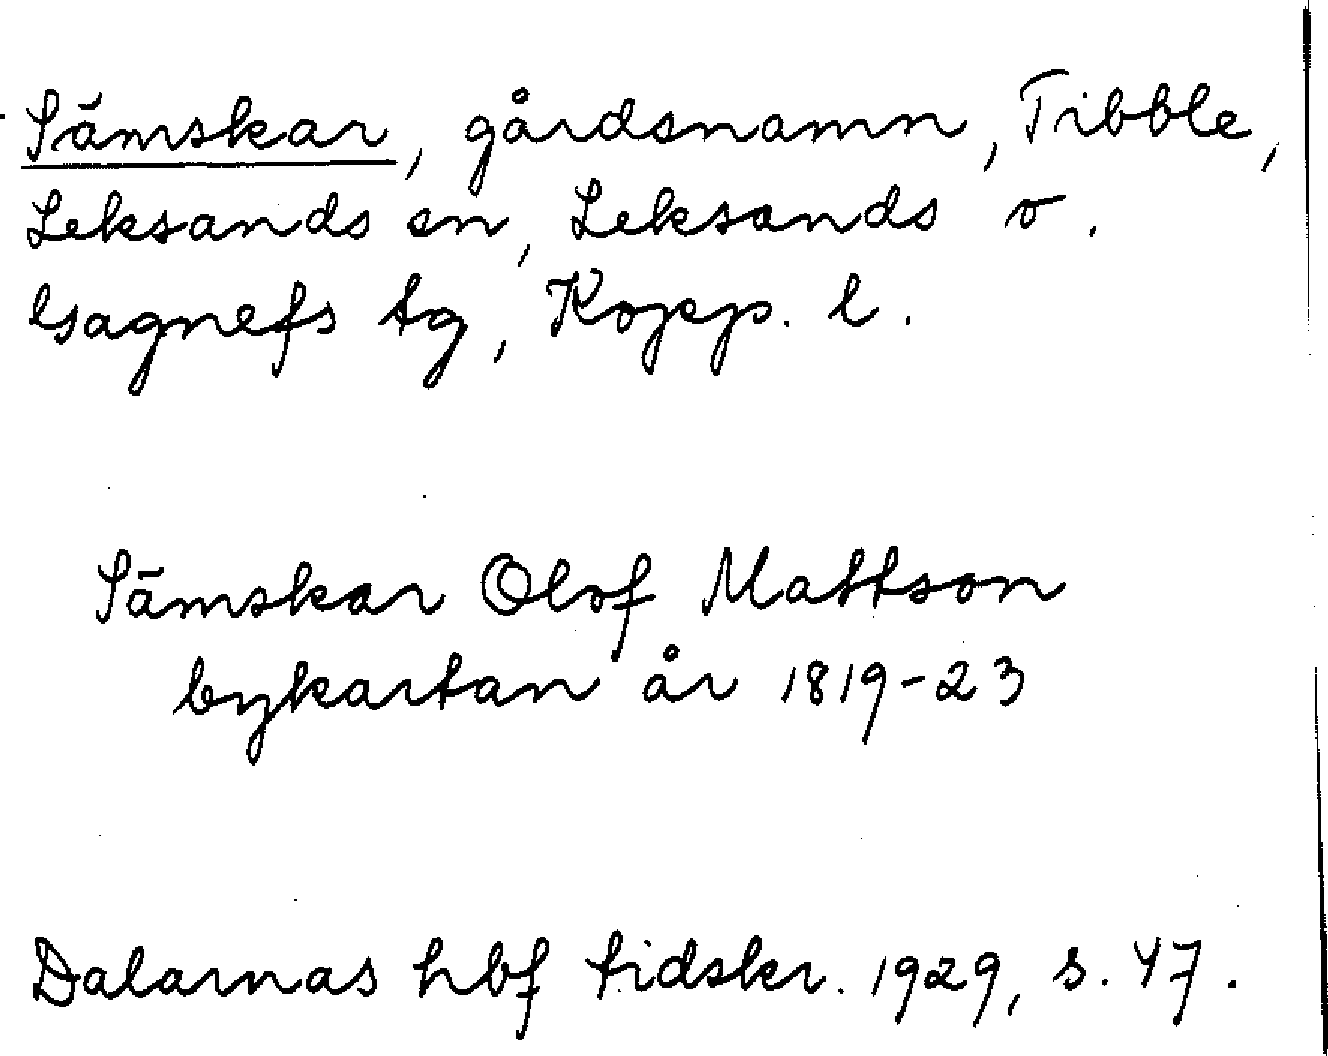 Sämskar, gårdsnamn, Tibble,
Leksands sn, Leksands o.
Gagnefs tg, Kopp. l.
Sämskar Olof Mattson
bykartan år 1819-23
Dalarnas hbf tidskr. 1929, s. 47.